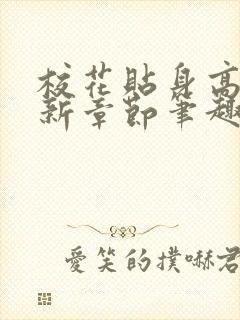 校花貼身高
新章節筆趣
愛笑的撲嚇君